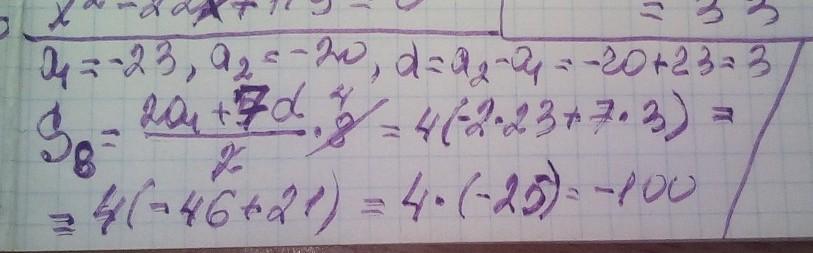 = 33
a₁ = -23, a₂ = -20, d = a₂ - a₁ = -20 + 23 = 3
S₈ = (2a₁ + 7d)/2 · 8 4 = 4(-2·23 + 7·3) =
= 4(-46 + 21) = 4·(-25) = -100